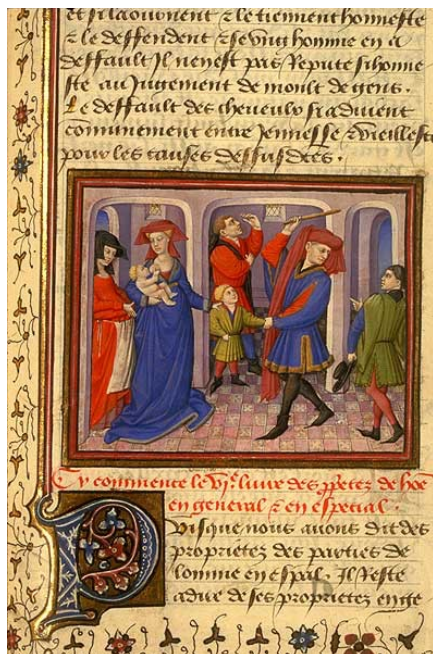 et si laouurent & le tiennent honneste
& le deffendent & se ung homme en a
deffault Il nen est pas Repute si honne
ste au Jugement de moult de gens .
Le deffault des cheueulx si aduient
communement entre Jennesse & vieillesse
pour les causes dessusdites .
Cy commence le vie liure des ppetez de hoe
en general & en especial .
Puis que nous auons dit des
proprietez des parties de
lomme en espal Il Reste
a dire de ses proprietez en ge